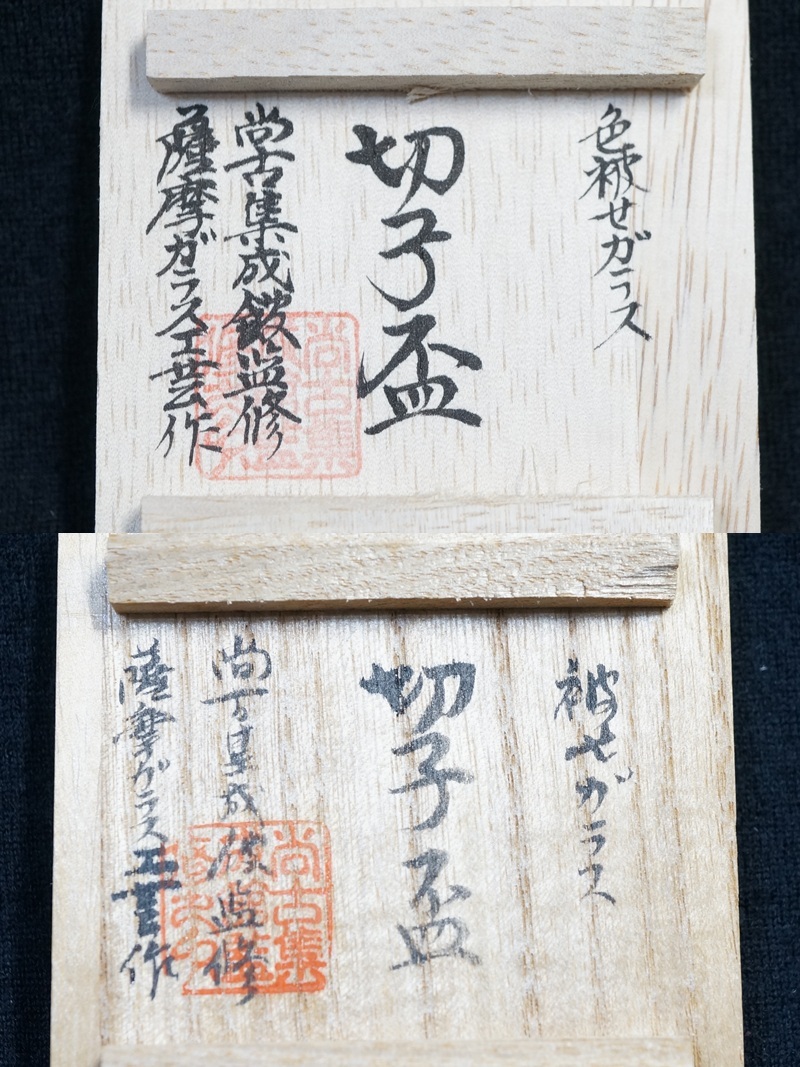 色被せガラス
切子盃
尚古集成館監修
薩摩ガラス工芸作
尚古集
被せガラス
切子盃
尚古集成館監修
薩摩ガラス工芸作
尚古集